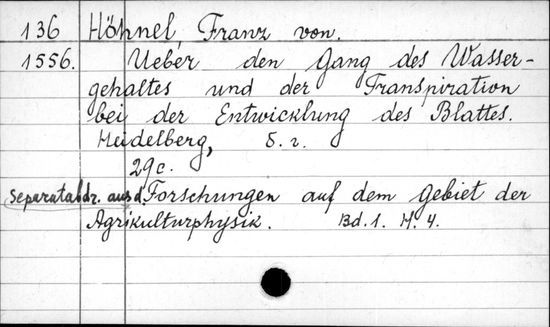 136 Höhnel, Franz von.
1556. Ueber den Gang des Wasser-
gehaltes und der Transpiration
bei der Entwicklung des Blattes.
Heidelberg, S. r.
29c.
Separatabdr. aus d. Forschungen auf dem Gebiet der
Agrikulturphysik. Bd. 1. H. 4.